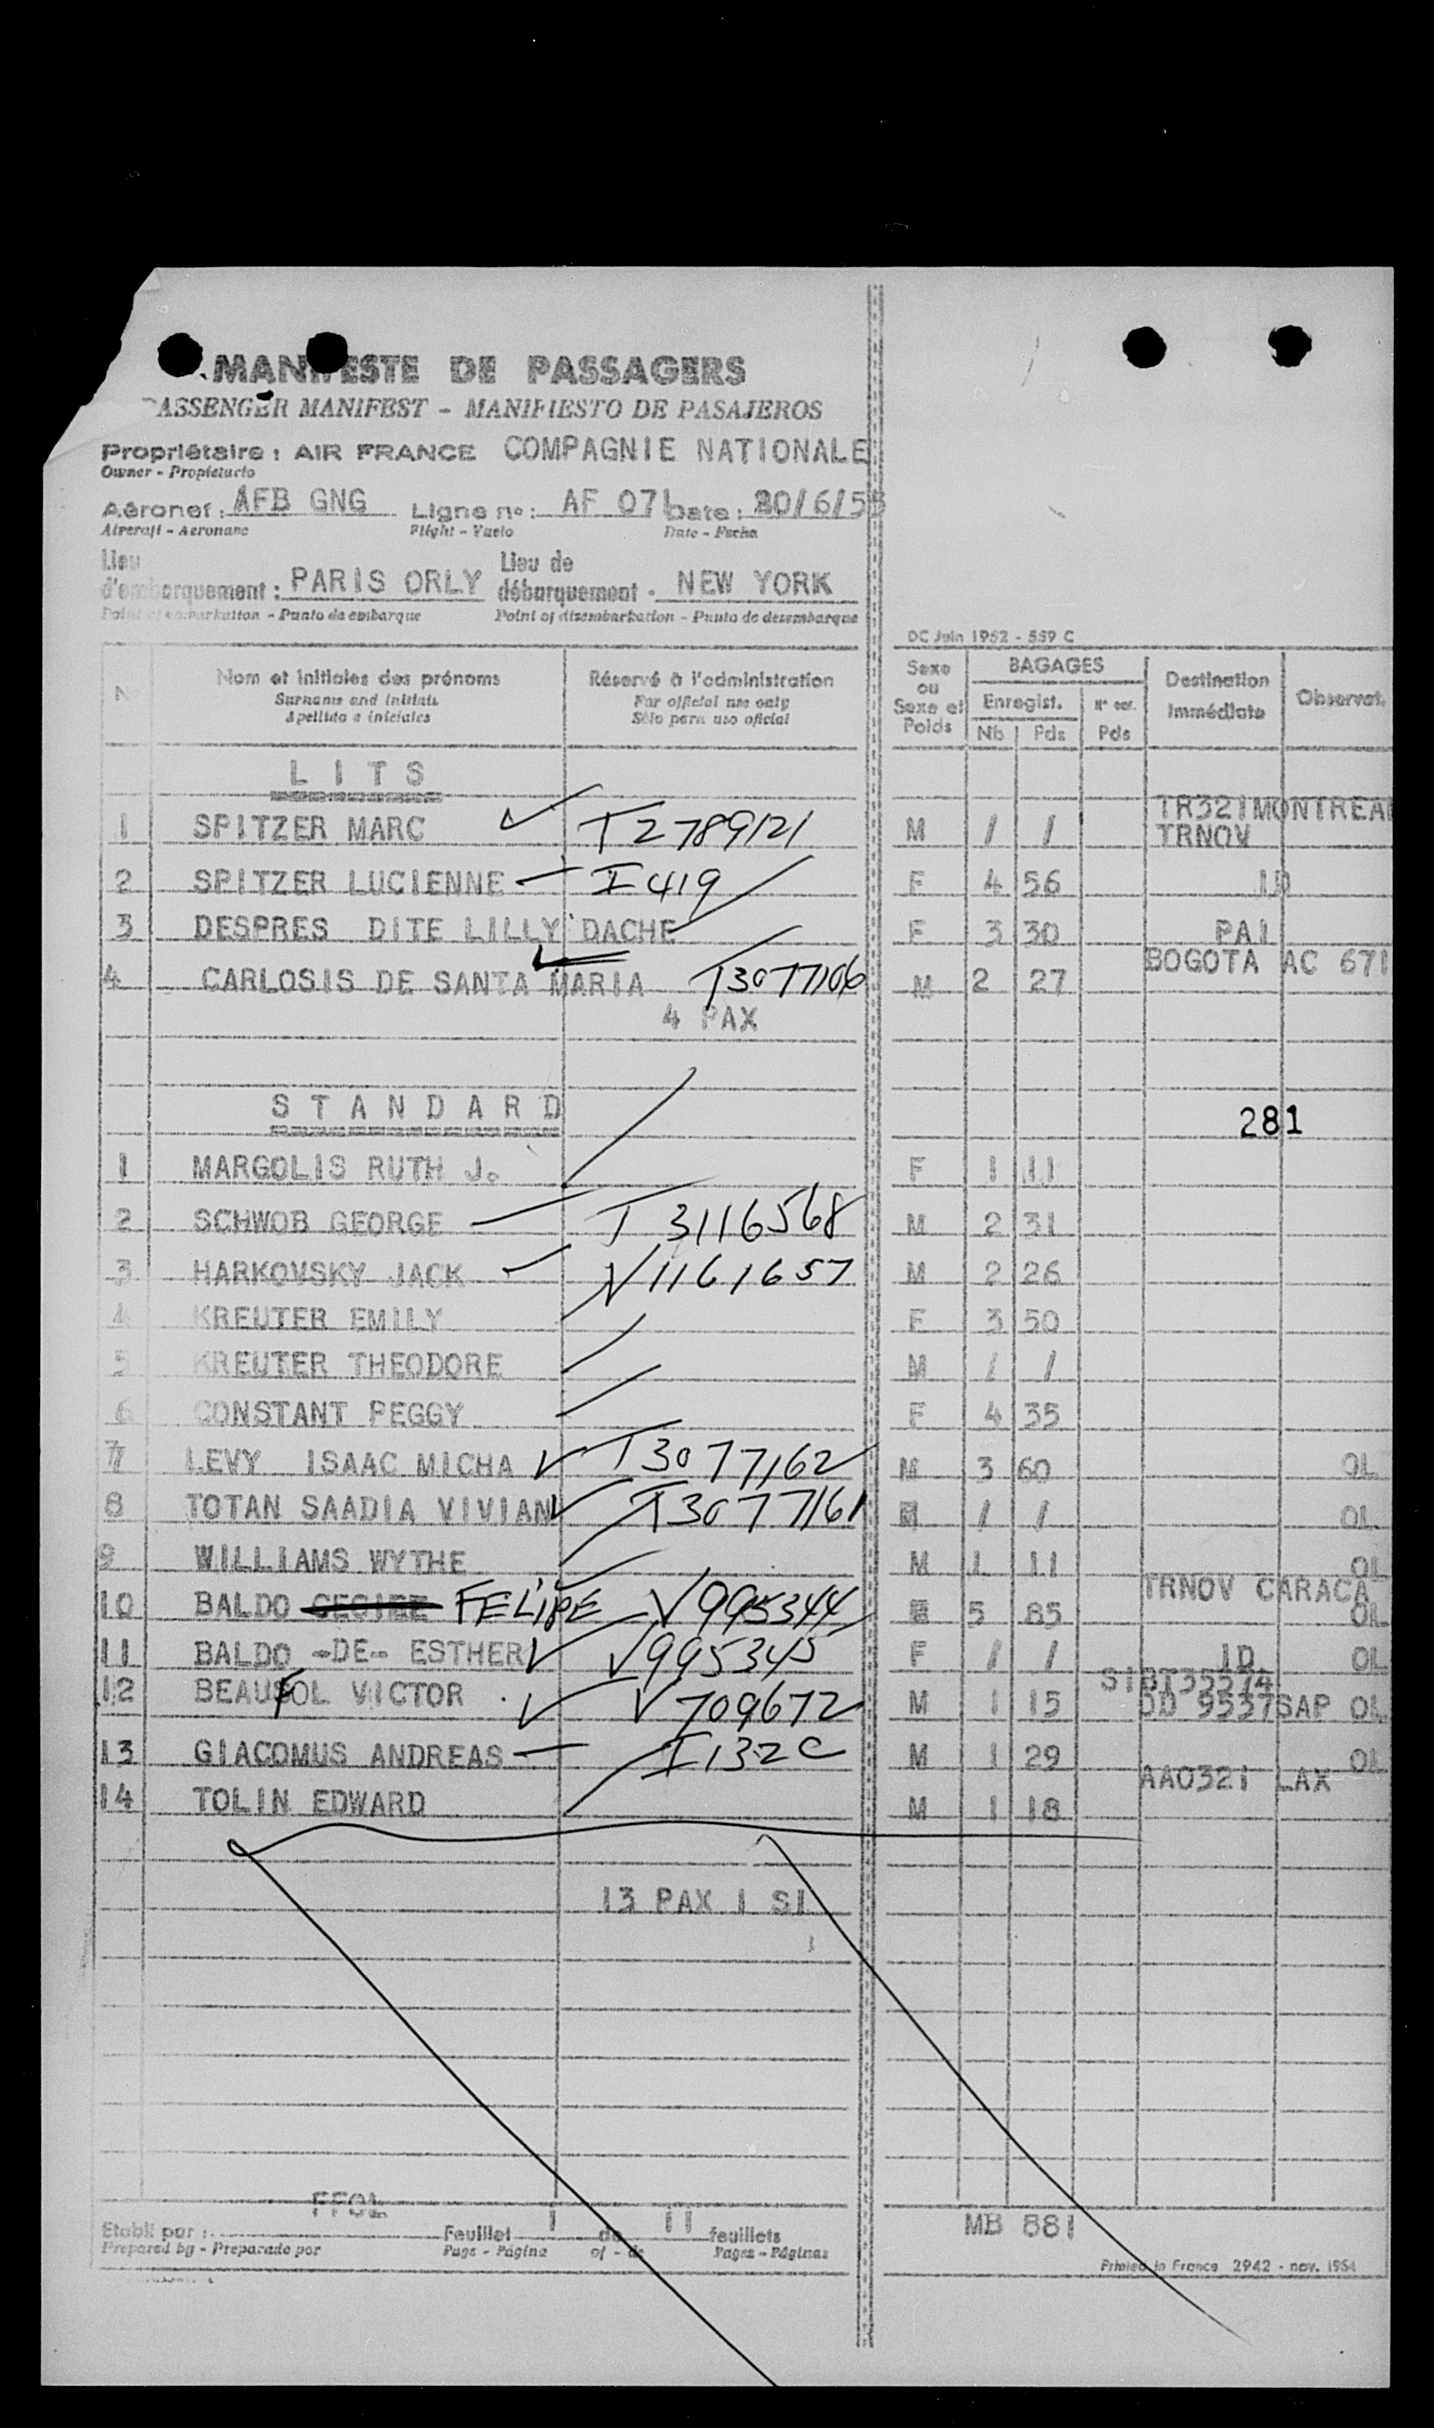 MANIFESTE DE PASSAGERS
PASSENGER MANIFEST - MANIFIESTO DE PASAJEROS
Propriétaire : AIR FRANCE COMPAGNIE NATIONALE
Owner - Propietario
Aéronef : AFB GNG Ligne n° : AF 071 Date : 20/6/55
Aircraft - Aeronave Flight - Vuelo Date - Fecha
Lieu d'embarquement : PARIS ORLY Lieu de débarquement - NEW YORK
Point of embarkation - Punto de embarque Point of disembarkation - Punto de desembarque
DC Juin 1952 - 559 C
N° Nom et initiales des prénoms Réservé à l'administration Sexe ou Sexe et Poids BAGAGES Destination Immédiate Observat.
Surname and initials For official use only Enregist.
Apellido e iniciales Sólo para uso oficial Nb Pds Pds
LITS
TR321MONTREAL
1 SPITZER MARC T2789121 M / / TRNOV
2 SPITZER LUCIENNE I 419 F 4 56 ID
3 DESPRES DITE LILLY DACHE F 3 30 PAI
BOGOTA AC 671
4 CARLOSIS DE SANTA MARIA T3077106 M 2 27
4 PAX
STANDARD
281
1 MARGOLIS RUTH J. F 1 11
2 SCHWOB GEORGE T 3116568 M 2 31
3 HARKOVSKY JACK V1161657 M 2 26
4 KREUTER EMILY F 3 50
5 KREUTER THEODORE M / /
6 CONSTANT PEGGY F 4 35
7 LEVY ISAAC MICHA T3077162 M 3 60 OL
8 TOTAN SAADIA VIVIAN T3077161 / / OL
9 WILLIAMS WYTHE M 1 11 OL
TRNOV CARACA
10 BALDO FELIPE V995344 5 85 OL
11 BALDO -DE- ESTHER V995345 F / / ID OL
12 BEAUSOL VICTOR V709672 M 1 15 OD 9537SAP OL
13 GIACOMUS ANDREAS I 132C M 1 29 OL
AA0321 LAX
14 TOLIN EDWARD M 1 18
13 PAX 1 S1
Etabli par : Feuillet 1 de 11 feuillets MB 881
Prepared by - Preparado por Page - Página of - de Pages - Páginas
Printed in France 2942 - nov. 1954